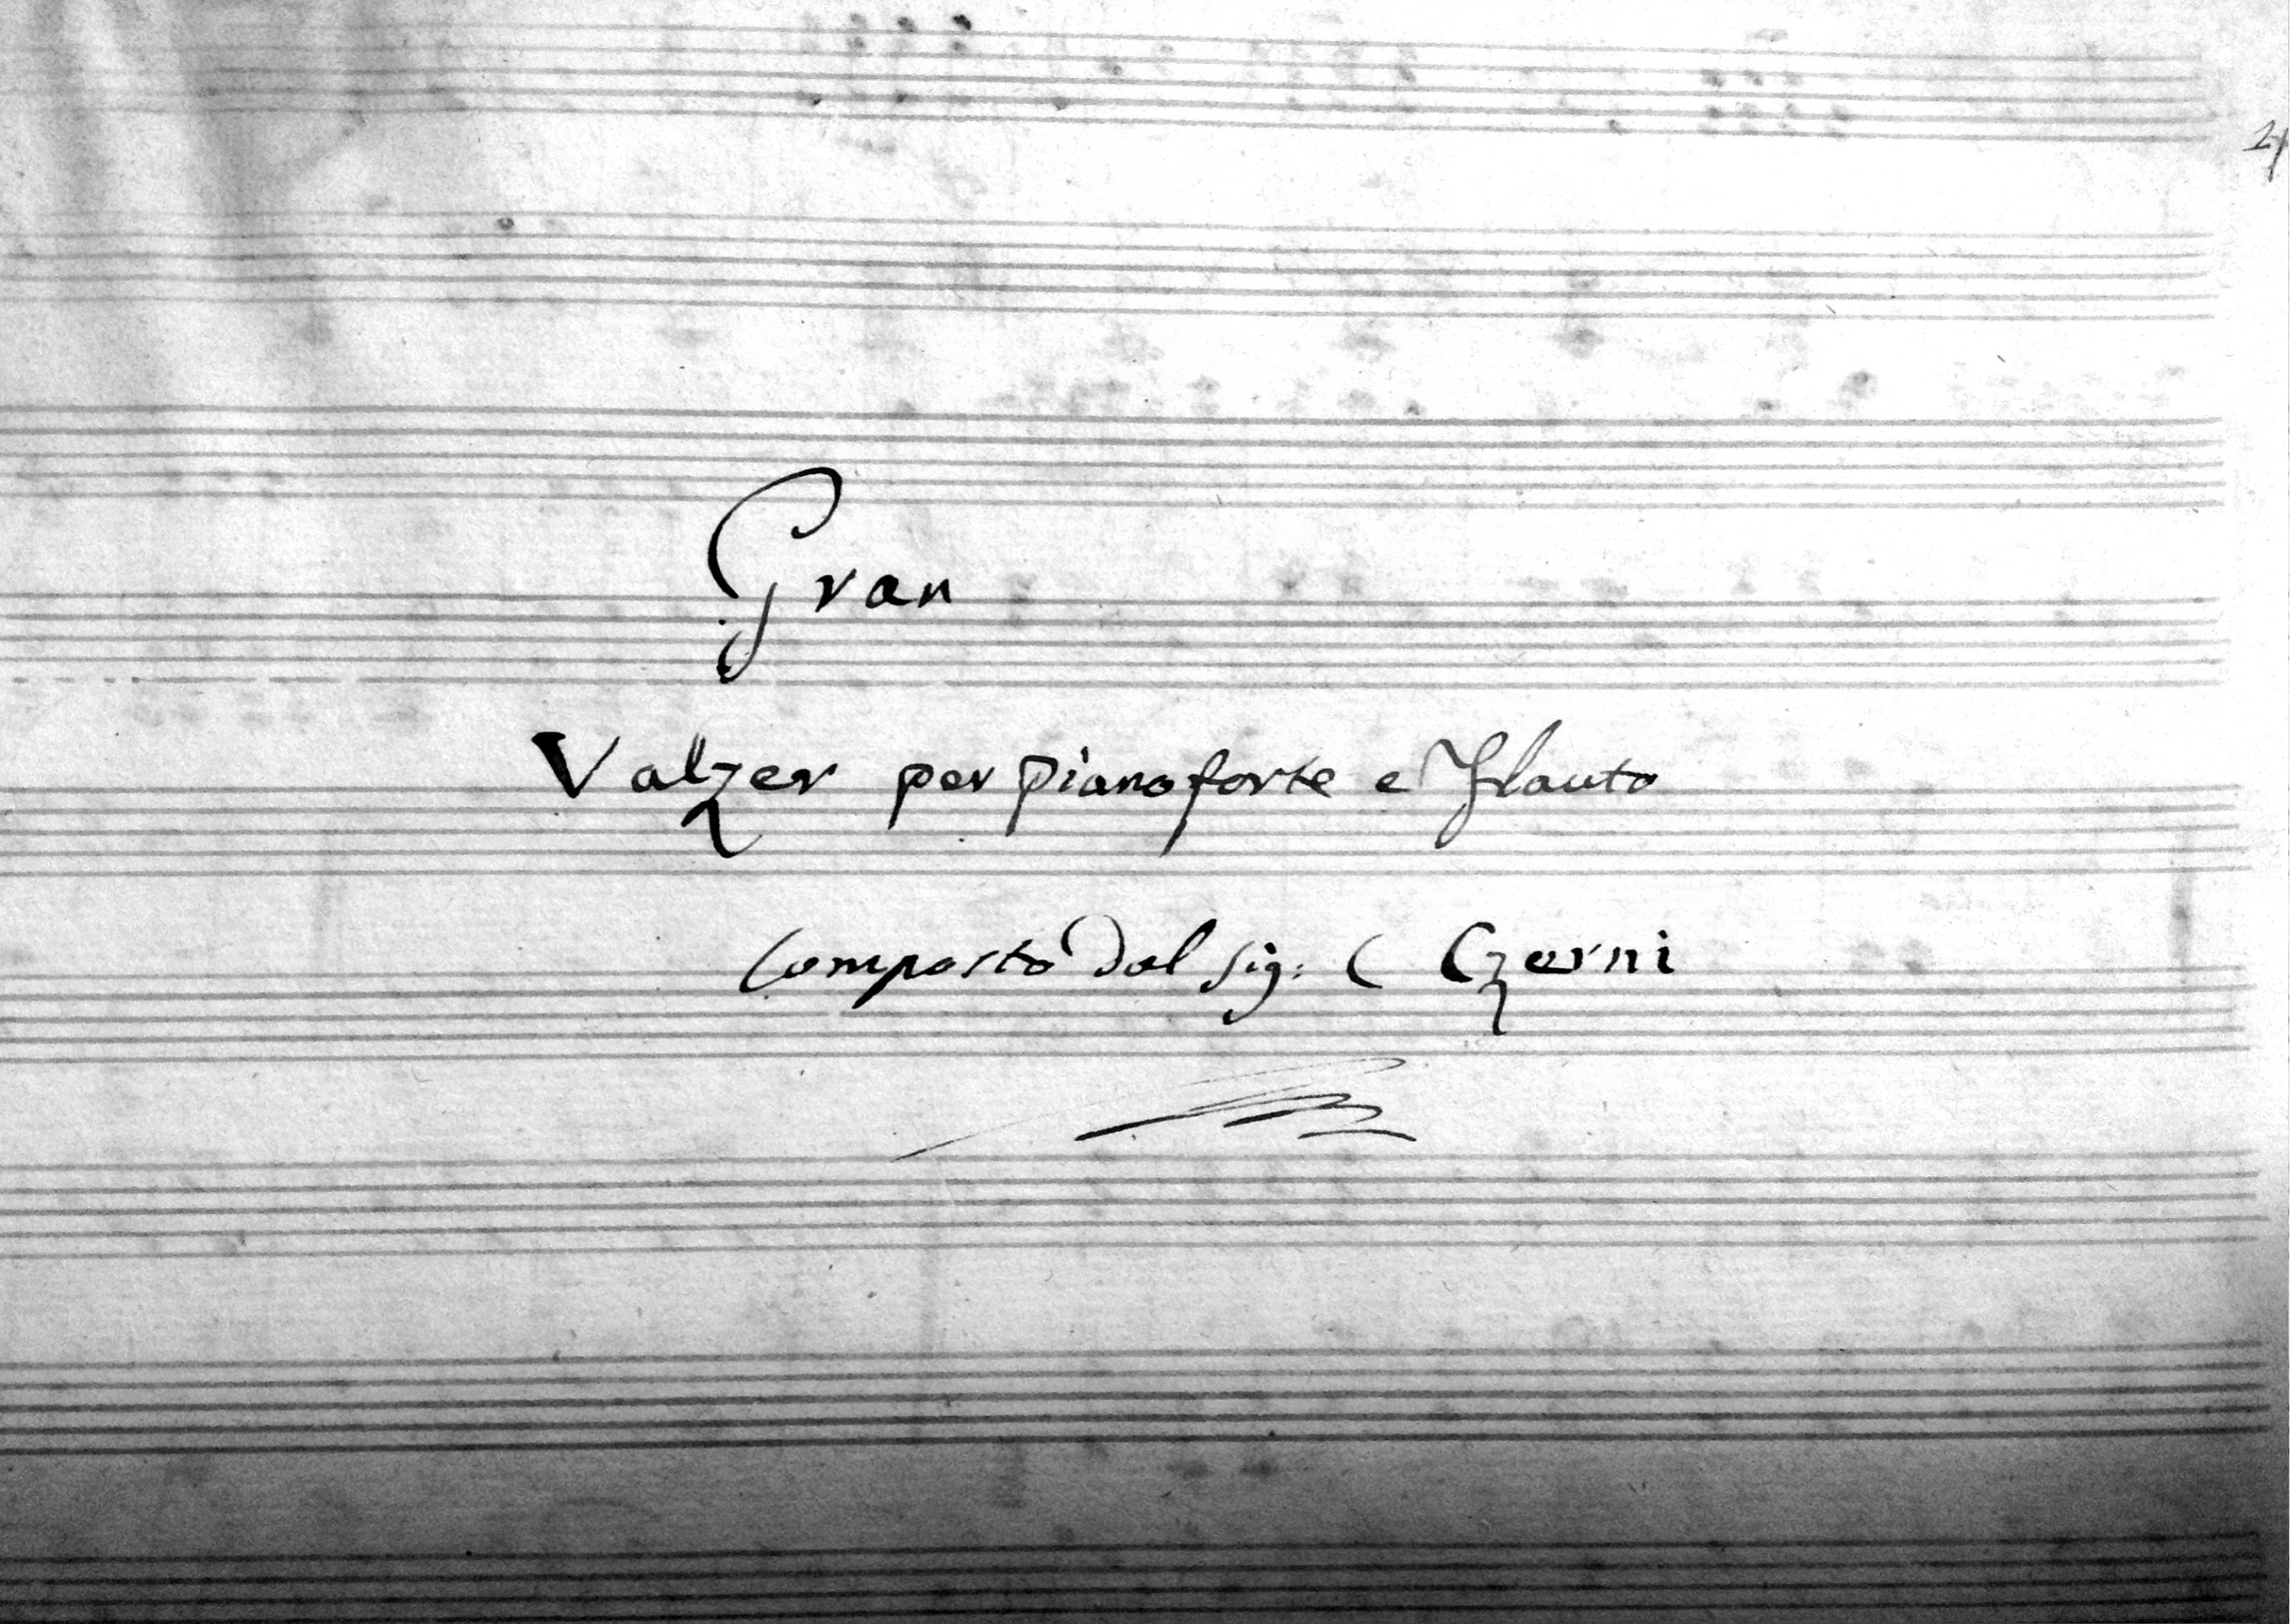 Gran
Valzer per pianoforte e Flauto
Composto Dal Sig: C Czerni